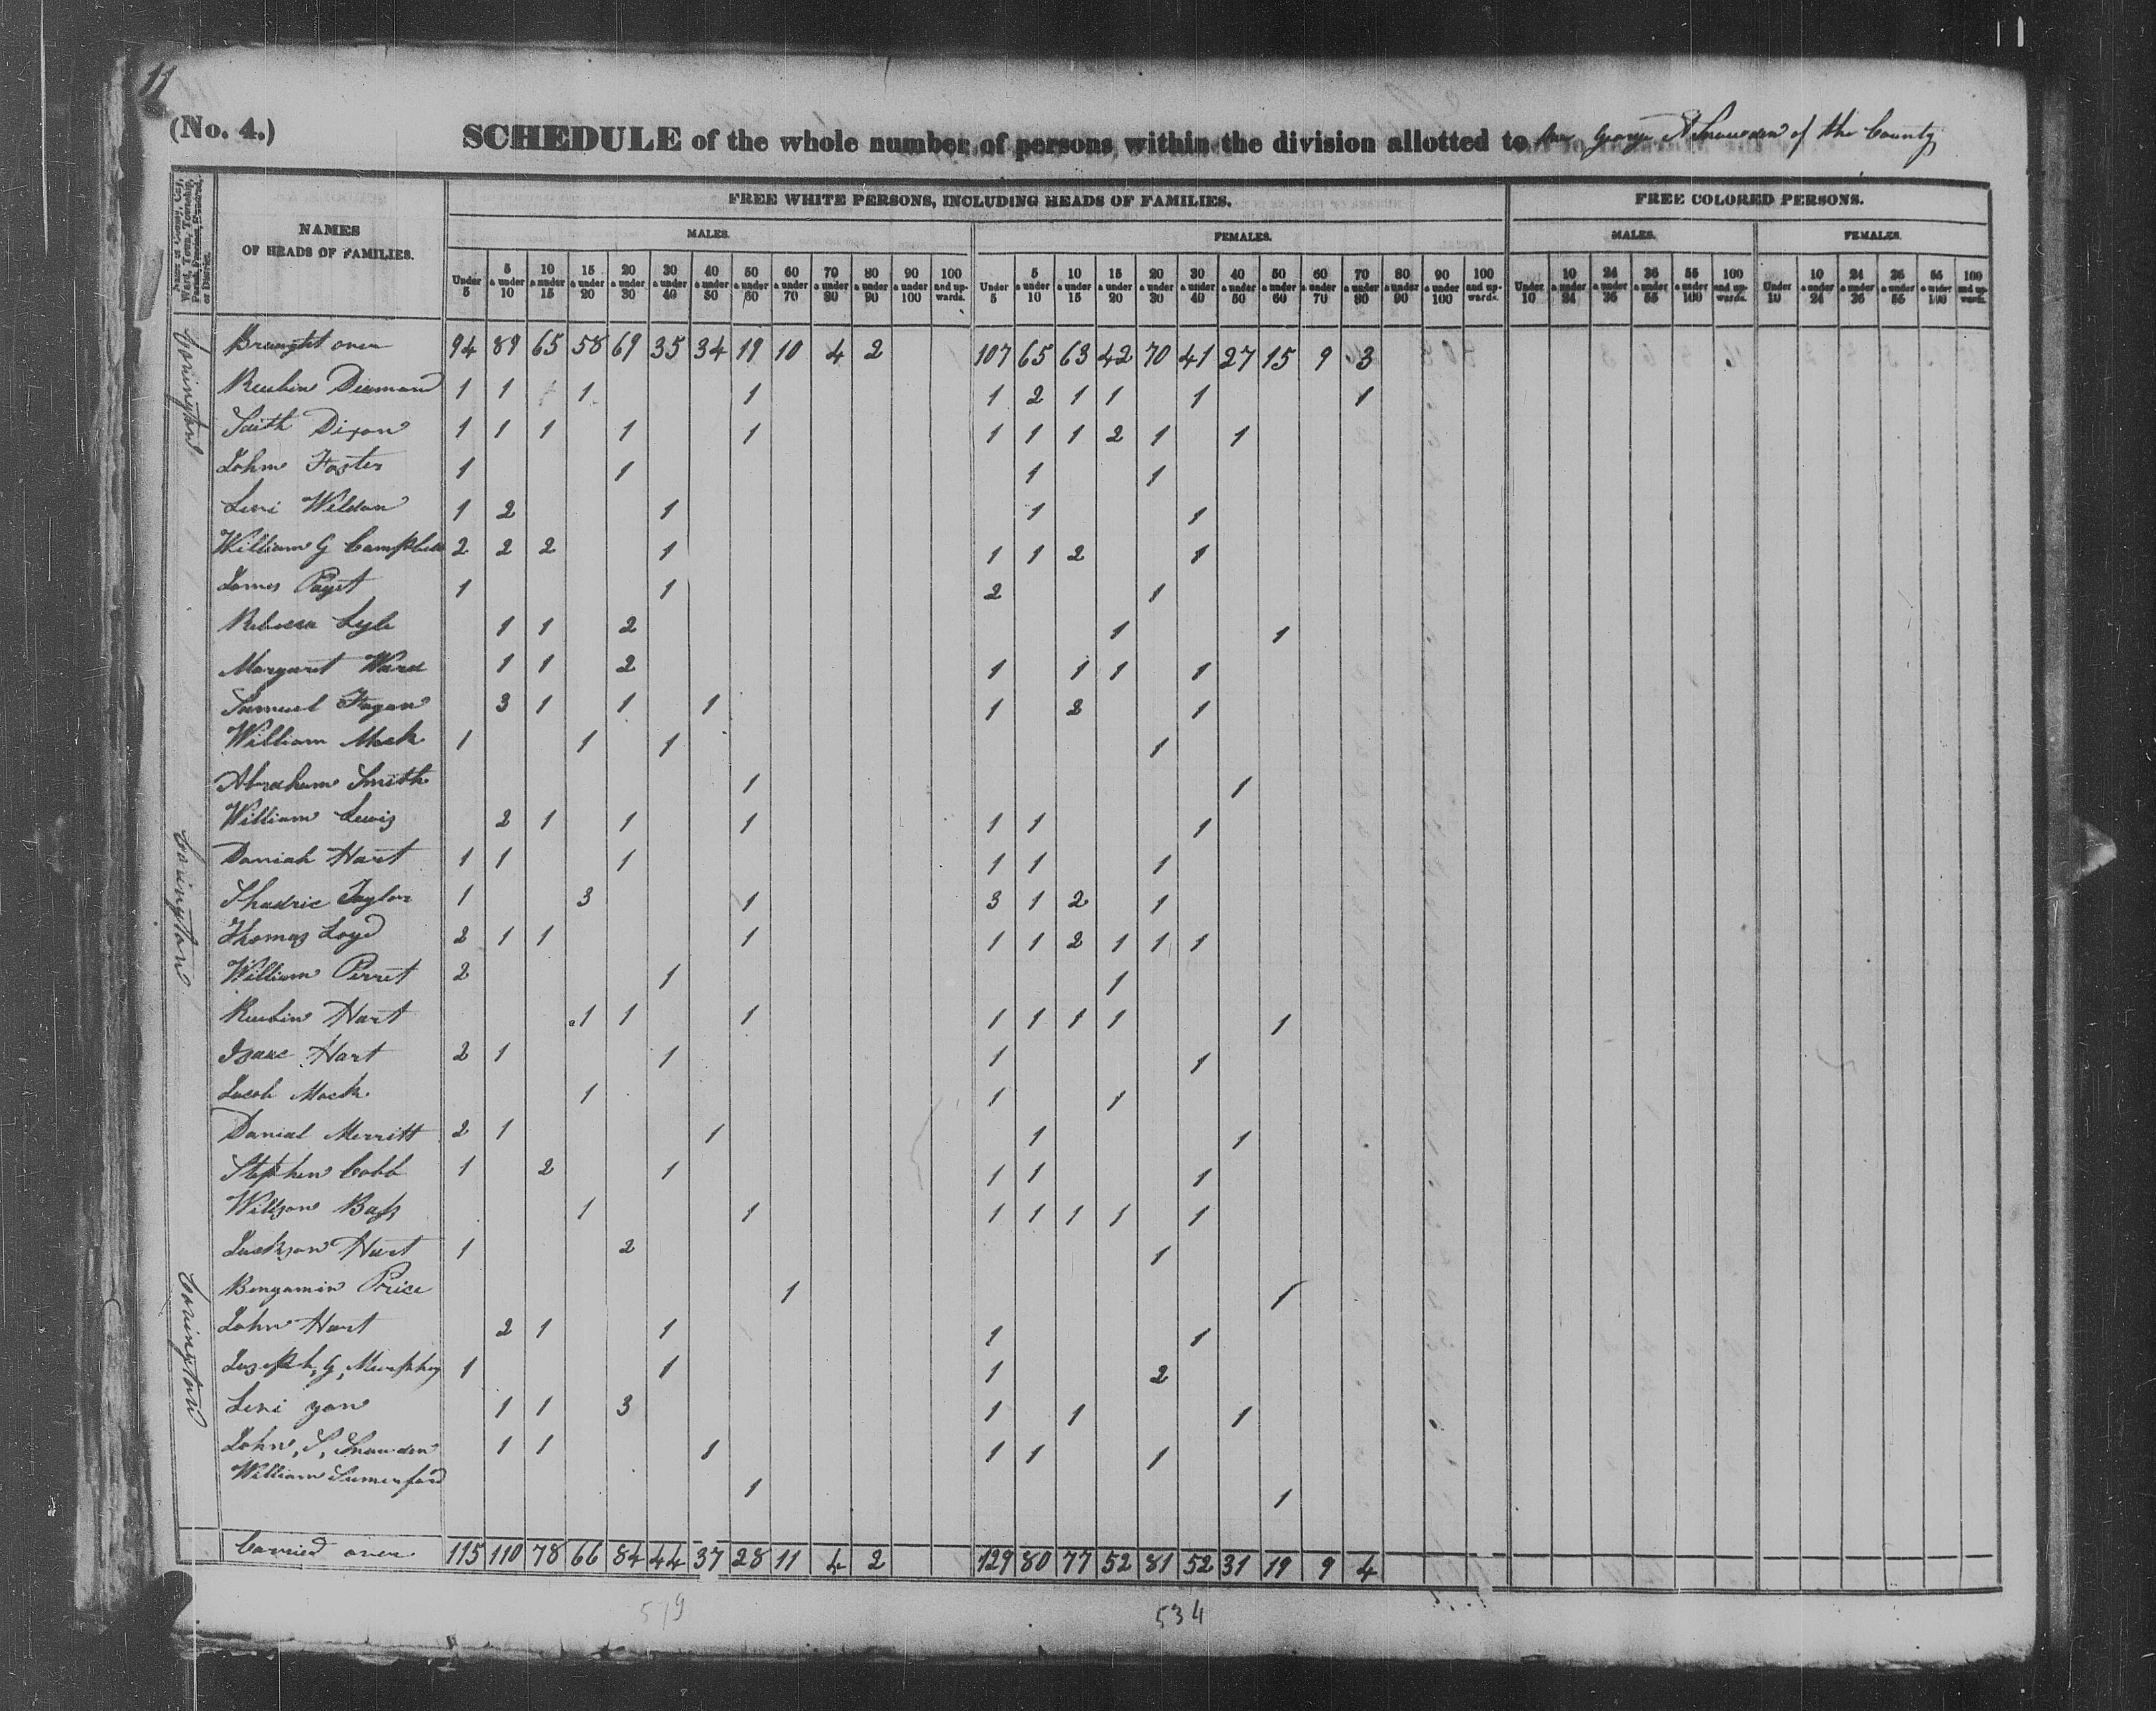 11
11
(No. 4.)
SCHEDULE of the whole number of persons within the division allotted to me George A Snowden of the County
Name of County, City, Ward, Town, Township, Parish, Precinct, Hundred, or District.
NAMES
OF HEADS OF FAMILIES.
FREE WHITE PERSONS, INCLUDING HEADS OF FAMILIES.
FREE COLORED PERSONS.
MALES.
FEMALES.
MALES.
FEMALES.
Under 5 5 & under 10 10 & under 15 15 & under 20 20 & under 30 30 & under 40 40 & under 50 50 & under 60 60 & under 70 70 & under 80 80 & under 90 90 & under 100 100 and upwards. Under 5 5 & under 10 10 & under 15 15 & under 20 20 & under 30 30 & under 40 40 & under 50 50 & under 60 60 & under 70 70 & under 80 80 & under 90 90 & under 100 100 and upwards. Under 10 10 & under 24 24 & under 36 36 & under 55 55 & under 100 100 and upwards. Under 10 10 & under 24 24 & under 36 36 & under 55 55 & under 100 100 and upwards.
Covington
Brought over 94 89 65 58 69 35 34 19 10 4 2 107 65 63 42 70 41 27 15 9 3
Reubin Diamand 1 1 1 1 1 2 1 1 1 1
Saith Dixon 1 1 1 1 1 1 1 1 2 1 1
John Foster 1 1 1 1
Levi Weldon 1 2 1 1 1
William G Campbell 2 2 2 1 1 1 2 1
James Paget 1 1 2 1
Rebecca Lyle 1 1 2 1 1
Margaret Ware 1 1 2 1 1 1 1
Samuel Fagan 3 1 1 1 1 2 1
William Mock 1 1 1 1
Abraham Smith 1 1
William Lewis 2 1 1 1 1 1 1
Covington
Daniah Hart 1 1 1 1 1 1
Shadric Taylor 1 3 1 3 1 2 1
Thomas Loyd 2 1 1 1 1 1 2 1 1 1
William Perret 2 1 1
Reubin Hart 1 1 1 1 1 1 1 1
Isaac Hart 2 1 1 1 1
Jacob Mock 1 1 1
Danial Merritt 2 1 1 1 1
Stephen Cobb 1 2 1 1 1 1
Willson Bass 1 1 1 1 1 1 1
Jackson Hart 1 2 1
Covington
Bengamin Price 1 1
John Hart 2 1 1 1 1
Joseph, G, Murphey 1 1 1 2
Levi yon 1 1 3 1 1 1
John, S, Snowden 1 1 1 1 1 1
William Sumerford 1 1
Carried over 115 110 78 66 84 44 37 28 11 4 2 129 80 77 52 81 52 31 19 9 4
519
534